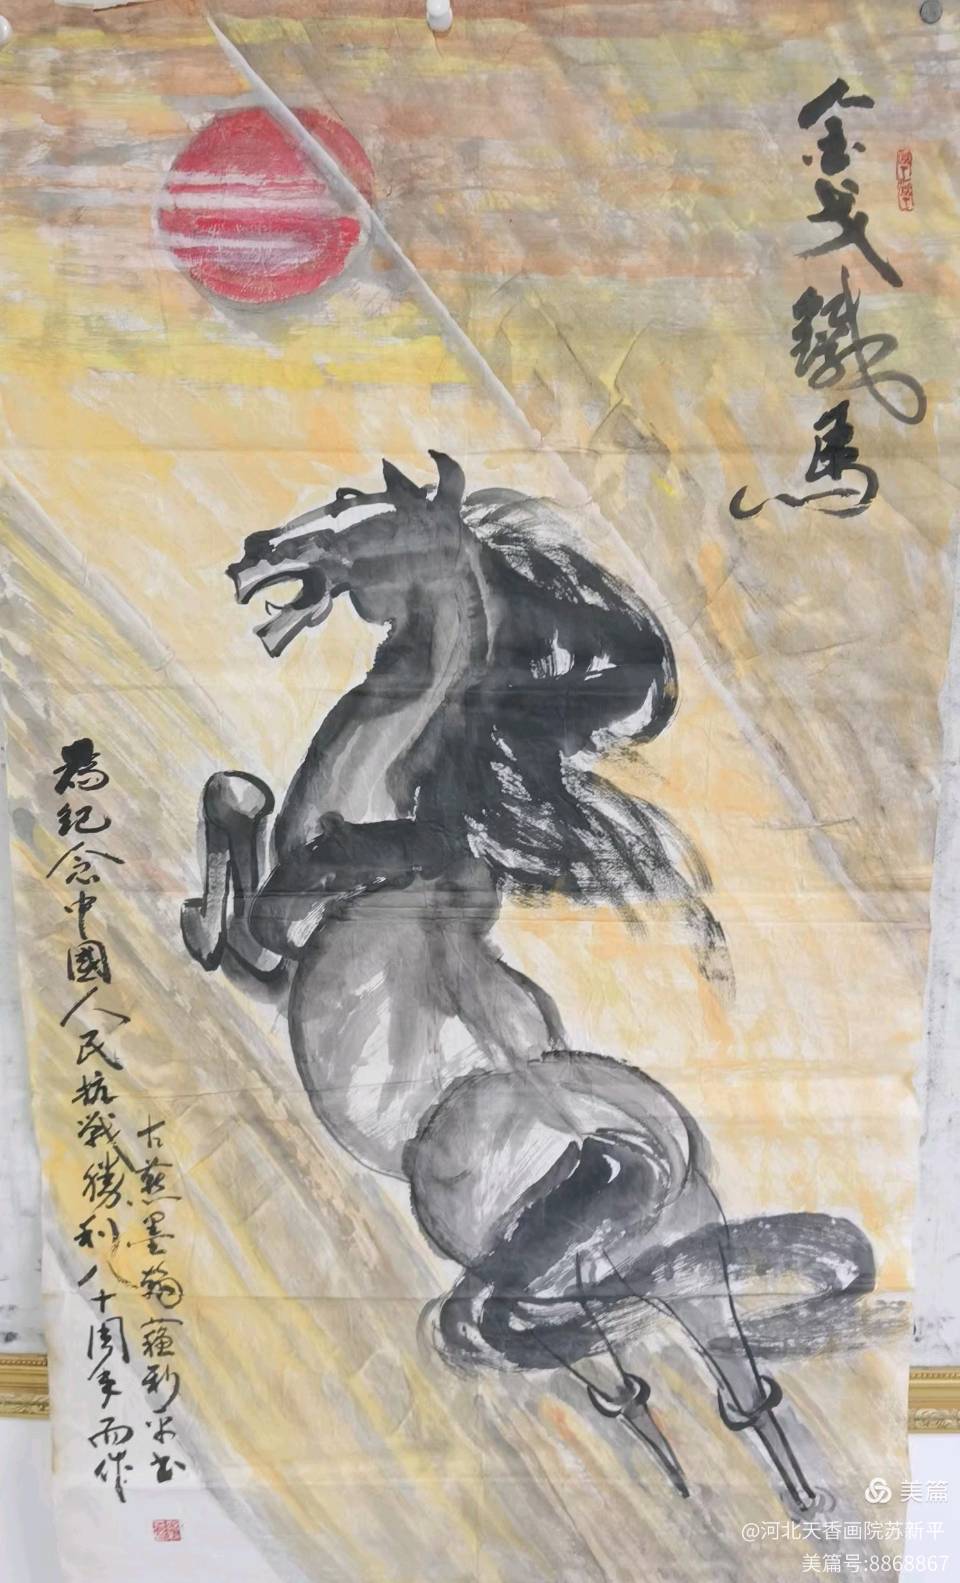 金戈鐵馬
為紀念中國人民抗戰勝利八十周年而作
古燕墨翰蘇新平書
美篇
@河北天香画院苏新平
美篇号:8868867